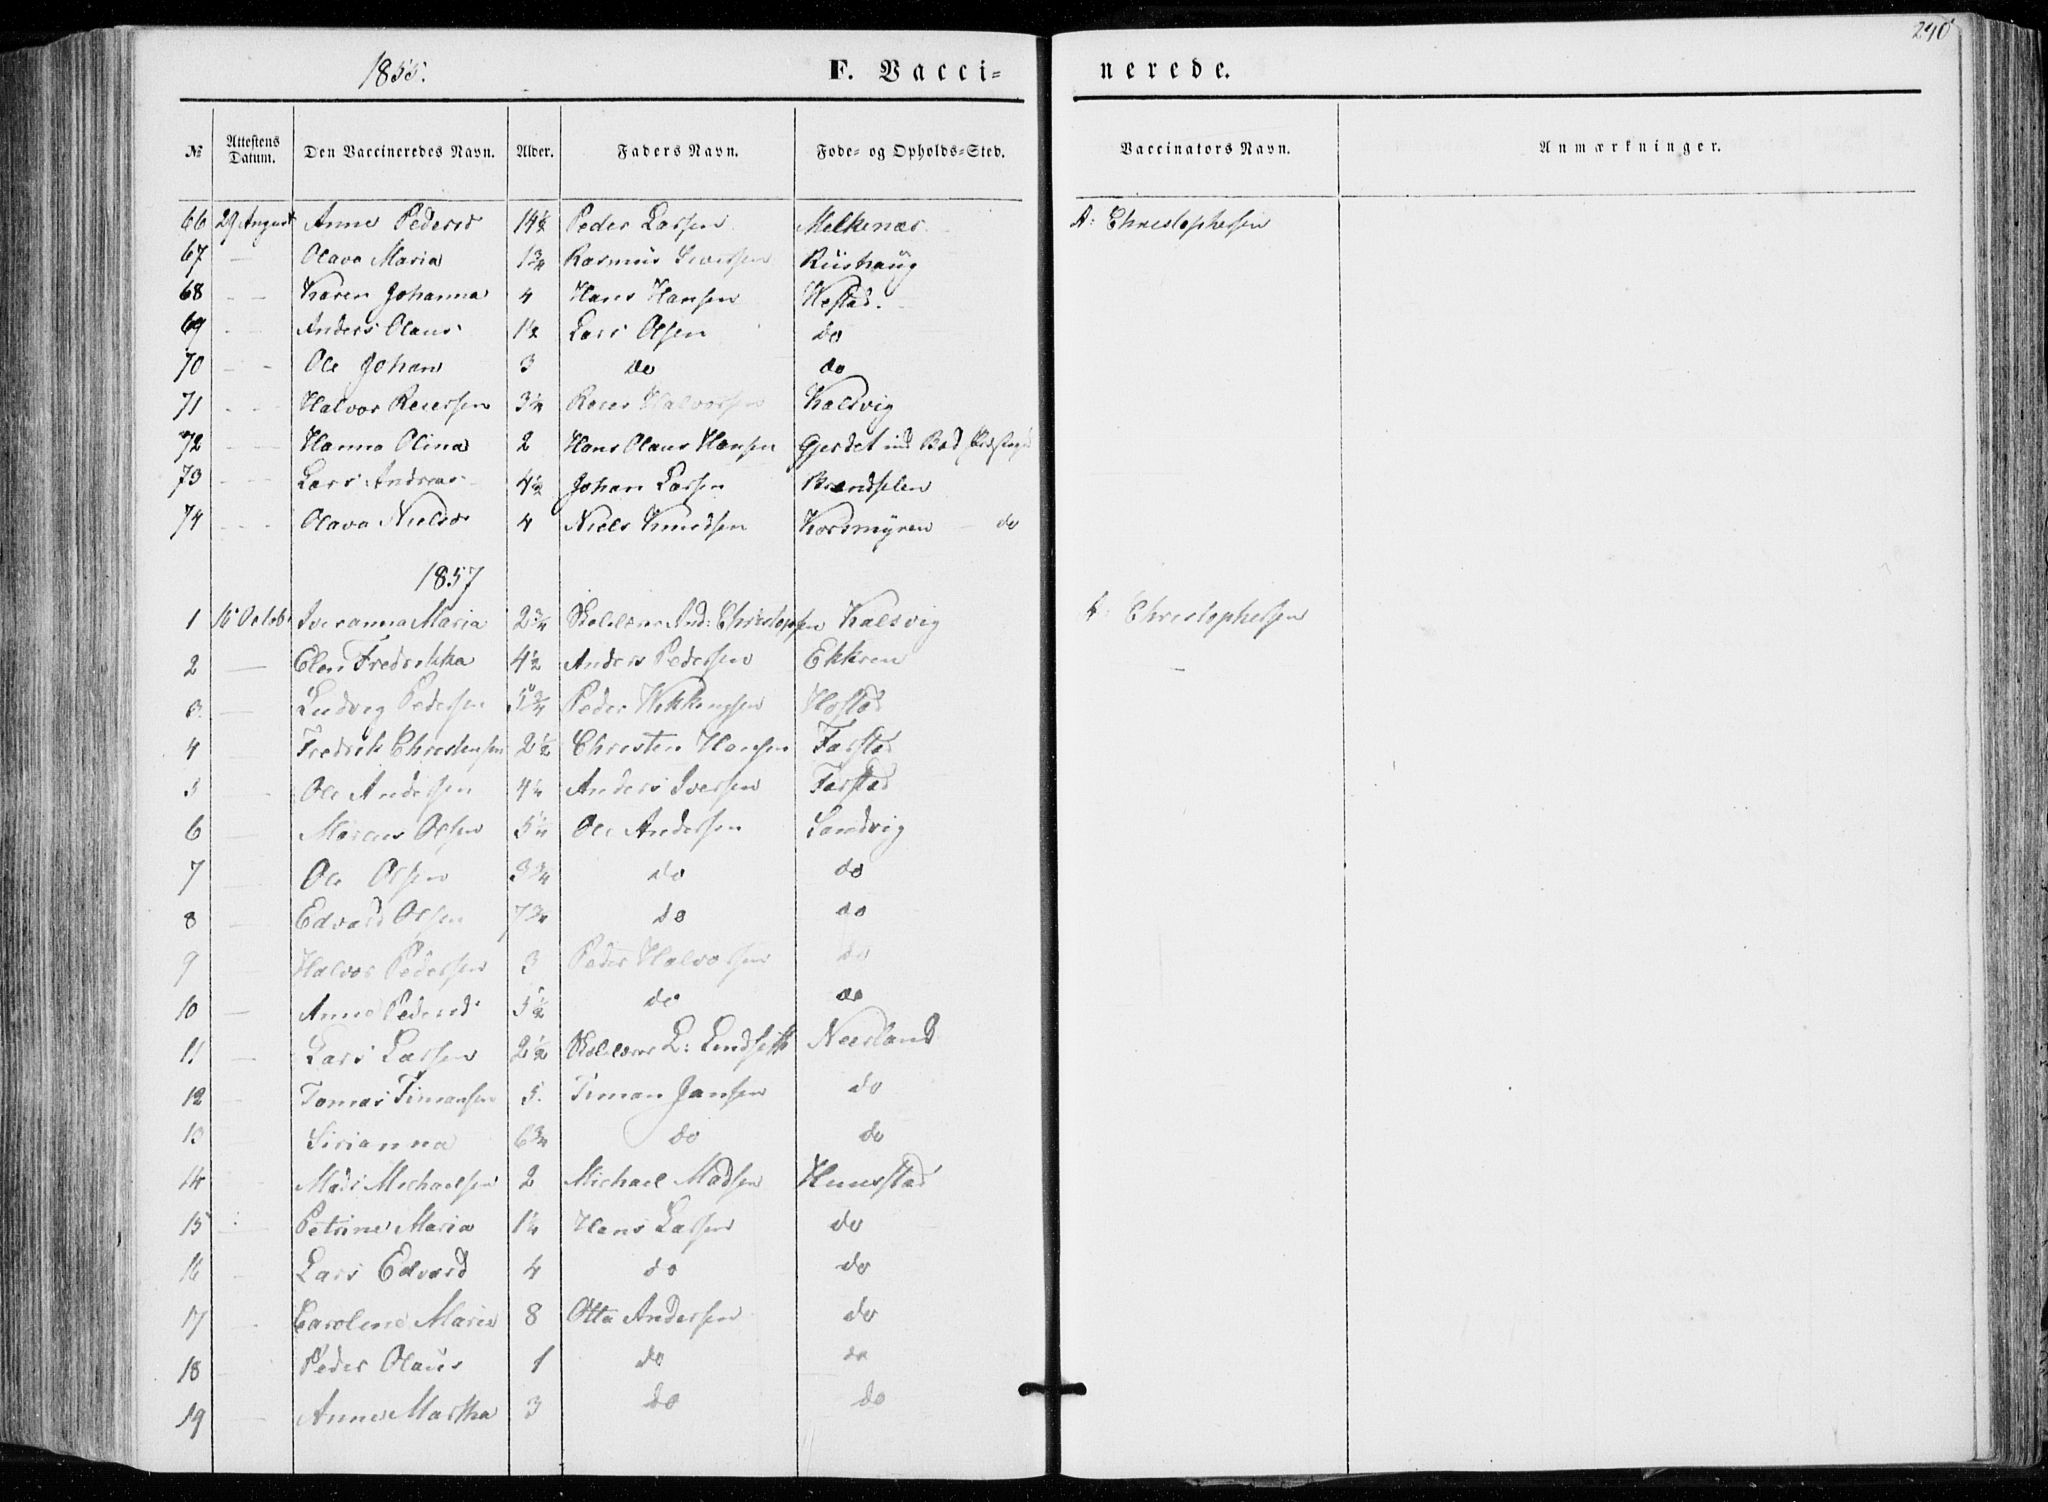 240
1855. F. Vacci= nerede.
№ Attestens Datum. Den Vaccineredes Navn. Alder. Faders Navn. Føde- og Opholds-Sted. Vaccinators Navn. Anmærkninger.
66 29 August Anne Pedersd 14½ Peder Larsen Melkenæs A: Christophersen
67 — Olava Maria 1¾ Rasmus Sivertsen Riishaug
68 — Karen Johanna 4 Hans Hansen Hostad.
69 — Anders Olaus 1½ Lars Olsen do
70 — Ole Johan 3 do do
71 — Halvor Reiersen 3¼ Reier Halvorsen Kalsvig
72 — Hanna Olina 2 Hans Olaus Hansen Gjerdet ind Bod
73 — Lars Andreas 4½ Johan Larsen
74 — Olava Nielsd 4 Niels Knudsen Korsmyren — do
1857
1 16 Octobr Iveranna Maria 2¾ Skolelærer And: Christophersen Kalsvig A: Christophersen
2 — Elen Fredrikka 4½ Anders Pedersen Ekkren
3 — Ludvig Pedersen 5¾ Peder Hostad
4 — Fredrik Christensen 2½ Christen Hansen Farstad
5 — Ole Andersen 4¼ Anders Iversen Farstad
6 — Marcus Olsen 5¼ Ole Andersen Sandvig
7 — Ole Olsen 3¾ do do
8 — Edvard Olsen 7¾ do do
9 — Halvor Pedersen 3 Peder Halvorsen do
10 — Anne Pedersd 5½ do do
11 — Lars Larsen 2½ Skolelærer L: Lindseth Neerland
12 — Tomas Timansen 5. Timan Jansen do
13 — Sirianna 6¾ do do
14 — Mads Michaelsen 2 Michael Madsen Hunsstad
15 — Petrine Maria 1¼ Hans Larsen do
16 — Lars Edvard 4 do do
17 — Caroline Marie 8 Otto Andersen do
18 — Peder Olaus 1 do do
19 — Anne Martha 3 do do